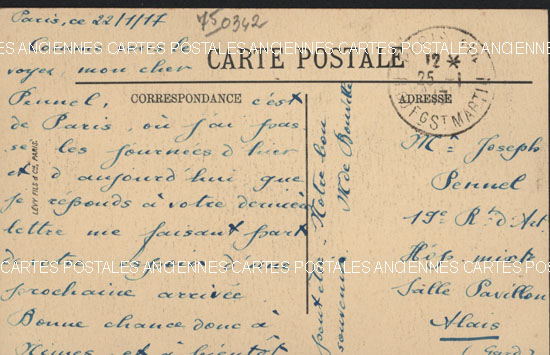 Paris, ce 22/1/17
750342
Comme vous le
voyez mon cher
CARTE POSTALE
Pennel, c'est
de Paris, où j'ai pas-
sé les journées d'hier
et d'aujourd'hui que
je réponds à votre dernière
lettre me faisant part
prochaine arrivée
Bonne chance donc à
Nîmes et à bientôt
CORRESPONDANCE
ADRESSE
LÉVY FILS & Cie, PARIS
Notre bon
souvenir
M de Bouville
12 *
25 - 1
FG ST MARTIN
Mr Joseph
Pennel
19e Rt d'Art
Hôp. mixte
Salle Pavillon
Alais
(Gard)
CARTES POSTALES ANCIENNES CARTES POSTALES ANCIENNES CARTES POSTALES ANCIENNES
CARTES POSTALES ANCIENNES CARTES POSTALES ANCIENNES CARTES POSTALES ANCIENNES